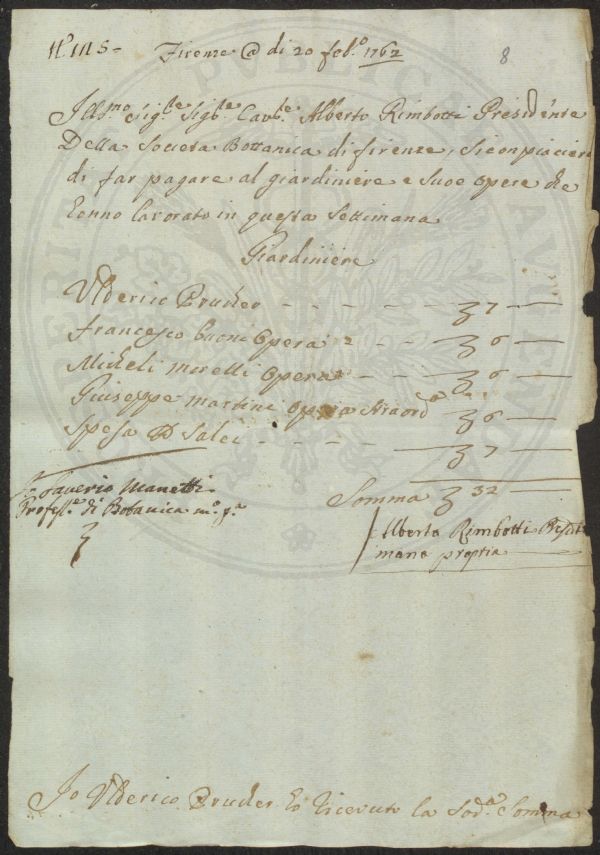 N° 115 - Firenze @ di 20 feb.° 1762 8
Ills.mo Sig.re Sig.re Cav.re Alberto Rimbotti Presidente
Della Societa Bottanica di firenze, Si conpiaciera
di far pagare al giardiniere e Suoe Opere che
Eonno lavorato in questa Settimana
Giardiniere
Vlderico Prucker - - - - - - 7 —
Francesco buoni Opera - - 6 —
Micheli Morelli Opera - - 6 —
Giuseppe Martini Opera Straord.a 6 —
Spesa Di Salci - - - - - 7 —
Somma 32 —
Saverio Manetti
Profess.e di Botanica m.° p.a
Alberto Rimbotti Presid.te
mano propria
Io Vlderico Prucker Eo Ricevuto la Sod.a Somma
PUBLICAE